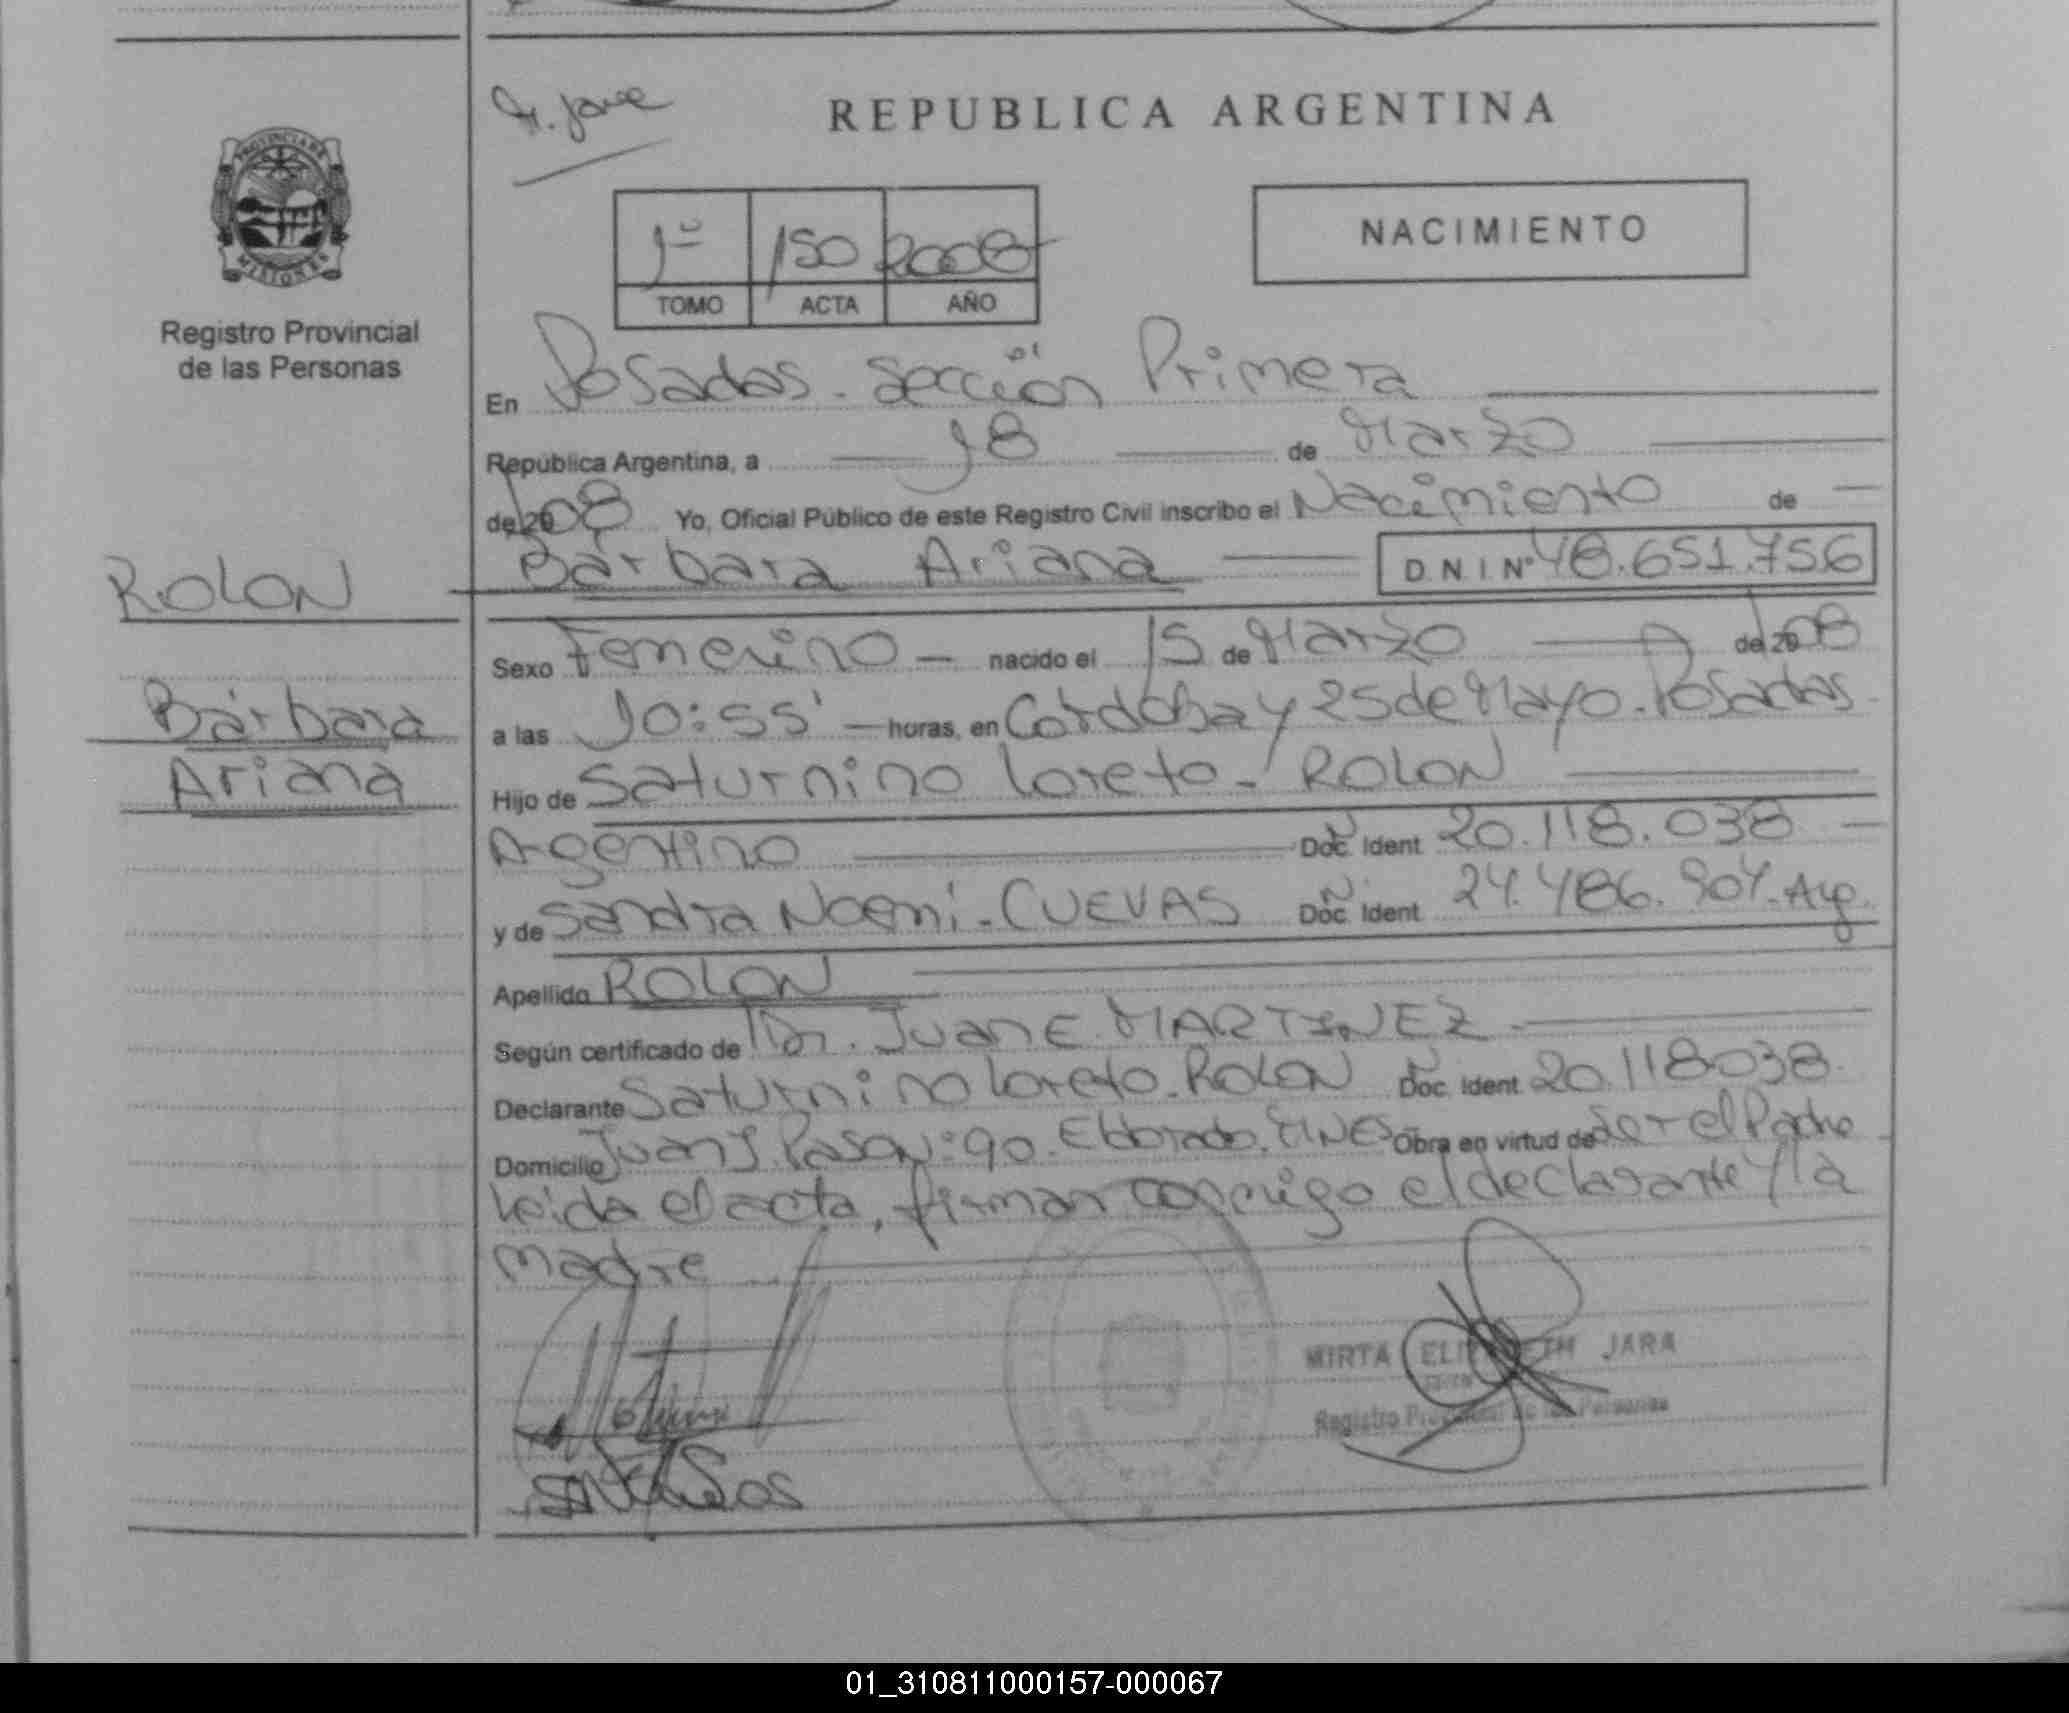 REPUBLICA ARGENTINA
PROVINCIA DE
MISIONES
Registro Provincial
de las Personas
NACIMIENTO
1º 150 2008
TOMO ACTA AÑO
En Posadas - Sección Primera
República Argentina, a 18 de Marzo
de 2008 Yo, Oficial Público de este Registro Civil inscribo el Nacimiento de
Bárbara Ariana D.N.I. Nº 48.651.756
ROLON
Bárbara
Ariana
Sexo Femenino nacido el 15 de Marzo de 2008
a las 10:55' horas, en Córdoba y 25 de Mayo - Posadas
Hijo de Saturnino Loreto - ROLON
Argentino Doc. Ident 20.118.038
y de Sandra Noemi - CUEVAS Doc. Ident 24.486.904 - Arg.
Apellido ROLON
Según certificado de Dr. Juan E. MARTINEZ
Declarante Saturnino Loreto - ROLON Doc. Ident 20.118038
Domicilio Juan J. Paso Nº 90 - Eldorado. Obra en virtud de Ser el Padre
Leida el acta, firman conmigo el declarante y la
madre
MIRTA JARA
Registro Provincial de las Personas
01_310811000157-000067